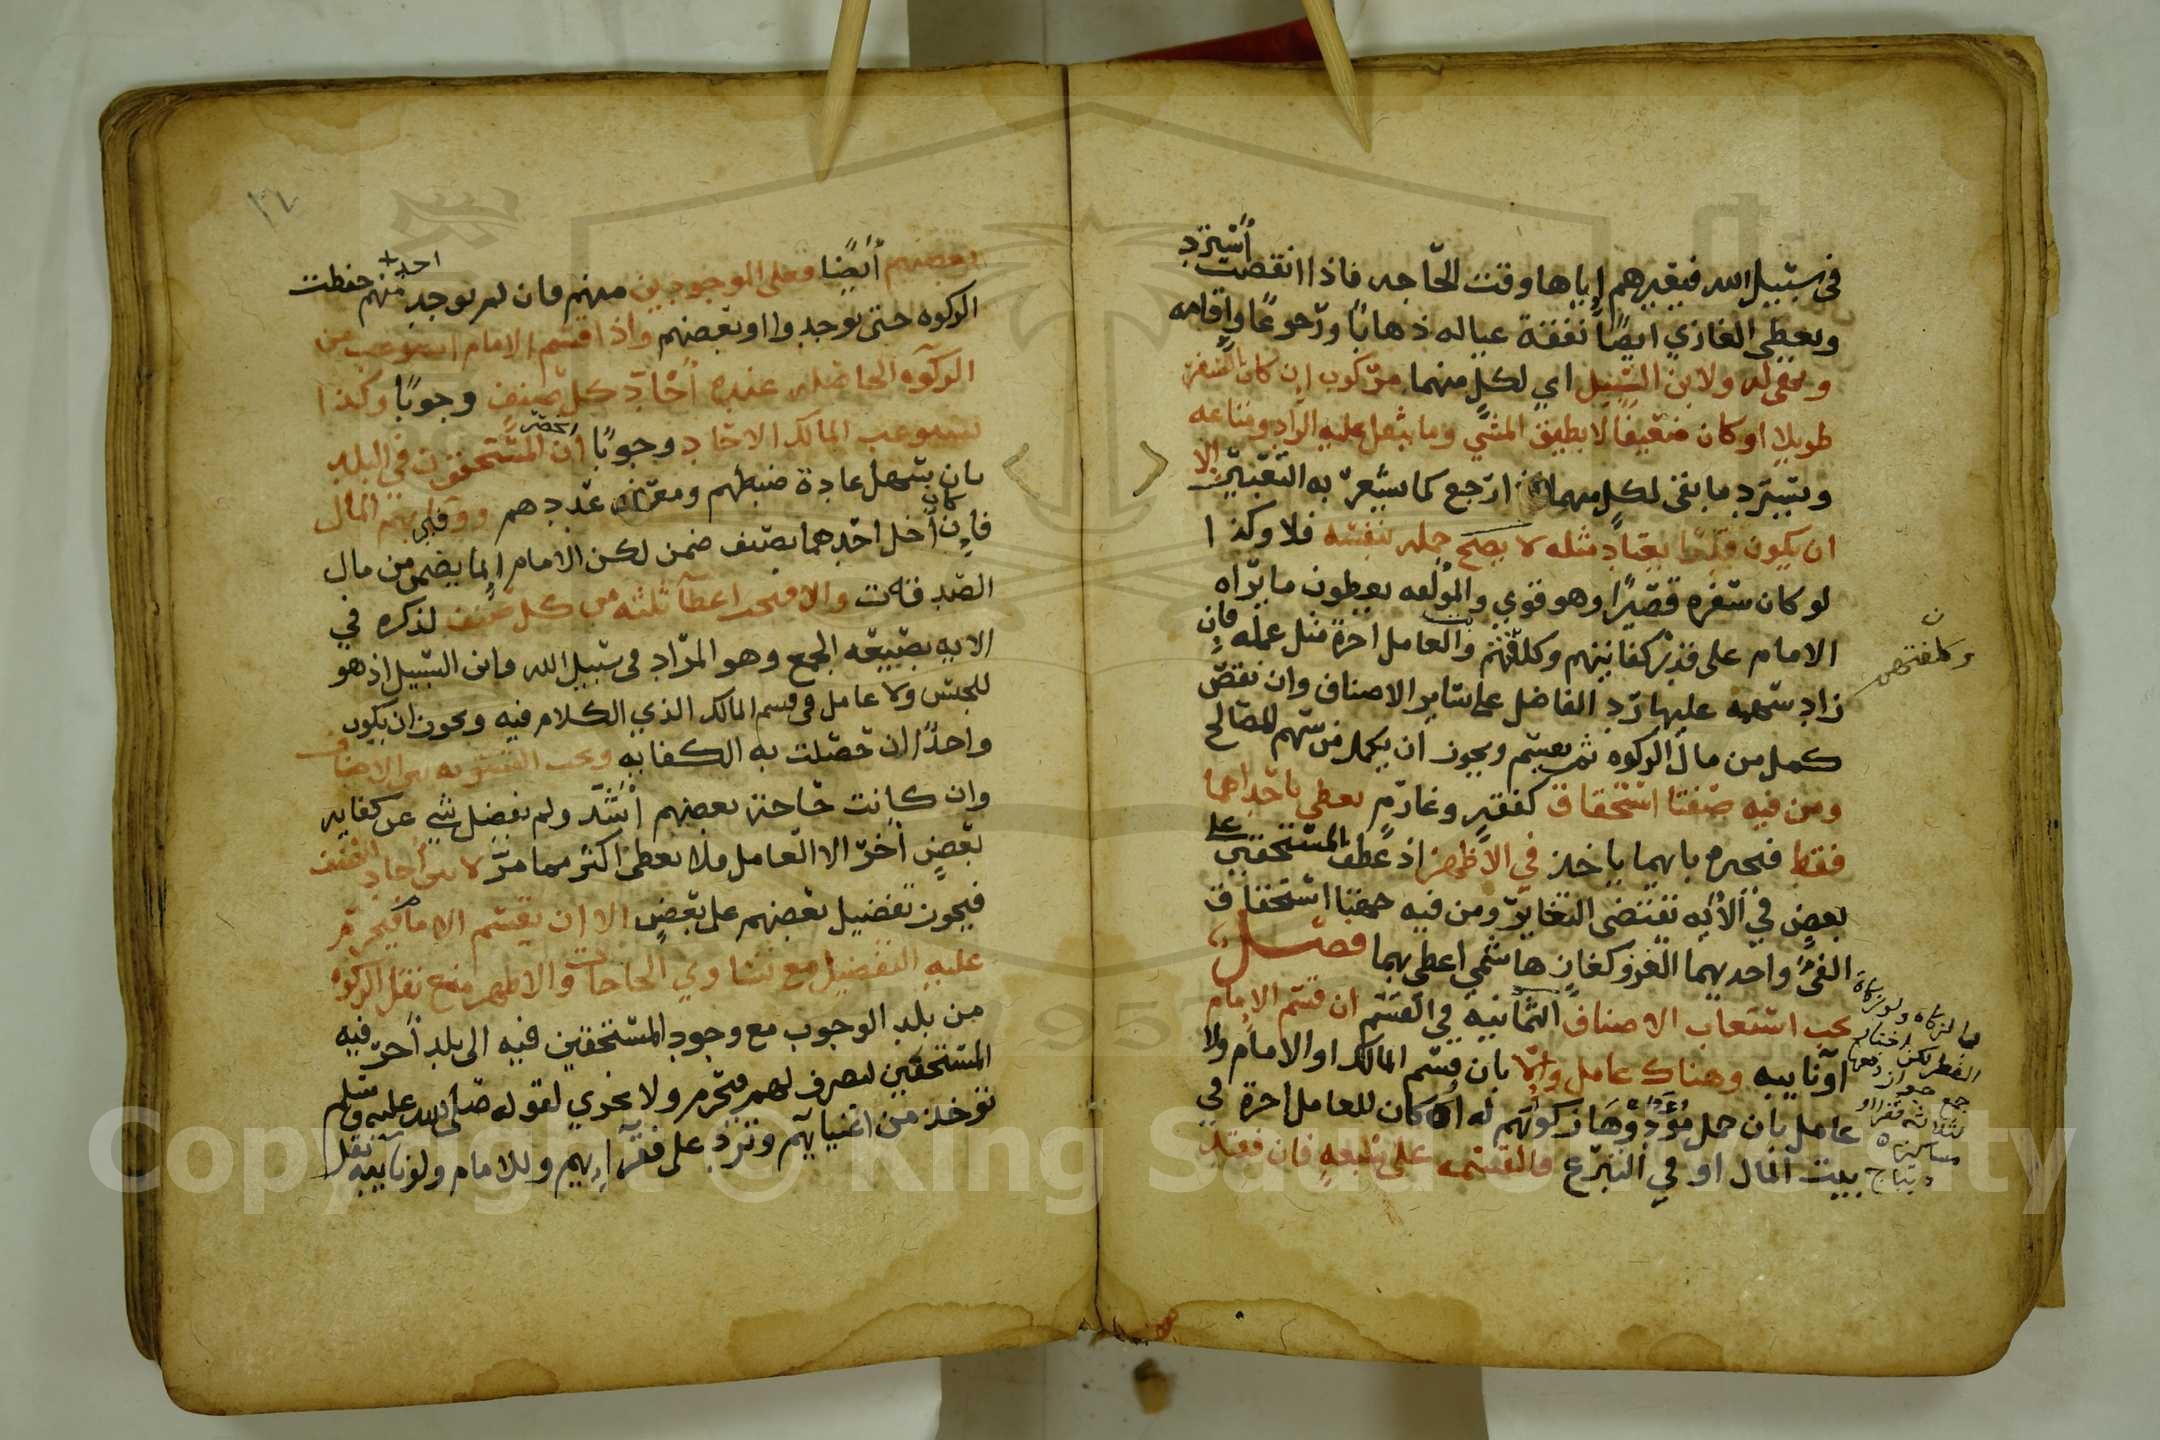 في سبيل الله فيعيرهم إياها وقت الحاجه فاذا انقضت أسترد
ويعطى الغازي ايضًا نفقة عياله ذهابًا ورجوعًا واقامه
ويهيى له ولابن السبيل اي لكل منهما مركوب إن كان السفر
طويلا او كان ضعيفًا لا يطيق المشي وما ينقل عليه الزاد ومتاعه
ويسترد ما بقى لكل منهما اذا رجع كما يشعر به التعبير الا
ان يكون قدرًا يعتاد مثله لا يصح حمله بنفسه فلا وكذا
لو كان سفره قصيرًا وهو قوي والمؤلفه يعطون ما يراه
الامام على قدر كفايتهم وكلفتهم والعامل اجرة مثل عمله فان
زاد سهمه عليها رد الفاضل على ساير الاصناف وان نقص
كمل من مال الزكوه ثم يقسم ويجوز ان يكمل من سهم المصالح
ومن فيه صفتا استحقاق كفقير وغارم يعطى باحداهما
فقط فيخير بايهما ياخذ في الأظهر اذ عطف المستحقين على
بعض في الأيه تقتضى التغاير ومن فيه صفتا استحقاق
الفئ واحديهما الغزو كغاز هاشمي اعطى بهما فصل
يجب استيعاب الاصناف الثمانيه في القسم ان قسم الامام
او نايبه وهناك عامل وإلا بان قسم المالك او الامام ولا
عامل بان حمل مؤدوها زكوتهم له او كان للعامل اجرة في
بيت المال او في التبرع فالقسمه على سبعه فان فقد
وكلفتهن
في الزكاه ولو زكاة
الفطر لكن اختار
جمع جواز دفعها
لثلاثه فقرا او
مساكين
ديباج
٣٧
بعضهم أيضًا فعلى الموجودين منهم فان لم يوجد احد منهم حفظت
الزكوه حتى يوجدوا او بعضهم واذا قسم الامام استوعب من
الزكوه الحاصله عنده أحاد كل صنف وجوبًا وكذا
يستوعب المالك الاحاد وجوبًا ان انحصر المستحقون في البلد
بان يسهل عادة ضبطهم ومعرفه عددهم ووفى بهم المال
فإن كان أخل احدهما بصنف ضمن لكن الامام إنما يضمن من مال
الصدقات والا فيجب اعطآ ثلثه من كل صنف لذكره في
الايه بصيغه الجمع وهو المراد في سبيل الله وابن السبيل اذ هو
للجنس ولا عامل في قسم المالك الذي الكلام فيه ويجوز ان يكون
واحدًا ان حصلت به الكفايه ويجب التسويه بين الاصناف
وان كانت حاجة بعضهم أشد ولم يفضل شي عن كفايه
بعض أخر الا العامل فلا يعطى اكثر مما مر لا بين أحاد الصنف
فيجوز تفضيل بعضهم على بعض الا ان يقسم الامام فيحرم
عليه التفضيل مع تساوي الحاجات والاظهر منع نقل الزكوه
من بلد الوجوب مع وجود المستحقين فيه الى بلد أخر فيه
المستحقين ليصرف لهم فيحرم ولا يجزي لقوله صلى الله عليه وسلم
توخذ من اغنيايهم وترد على فقرآيهم وللامام ولو نايبه نقل